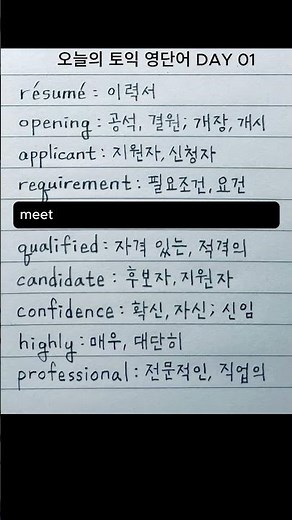 오늘의 토익 영단어 DAY 01
résumé : 이력서
opening : 공석, 결원; 개장, 개시
applicant : 지원자, 신청자
requirement : 필요조건, 요건
meet
qualified : 자격 있는, 적격의
candidate : 후보자, 지원자
confidence : 확신, 자신; 신임
highly : 매우, 대단히
professional : 전문적인, 직업의